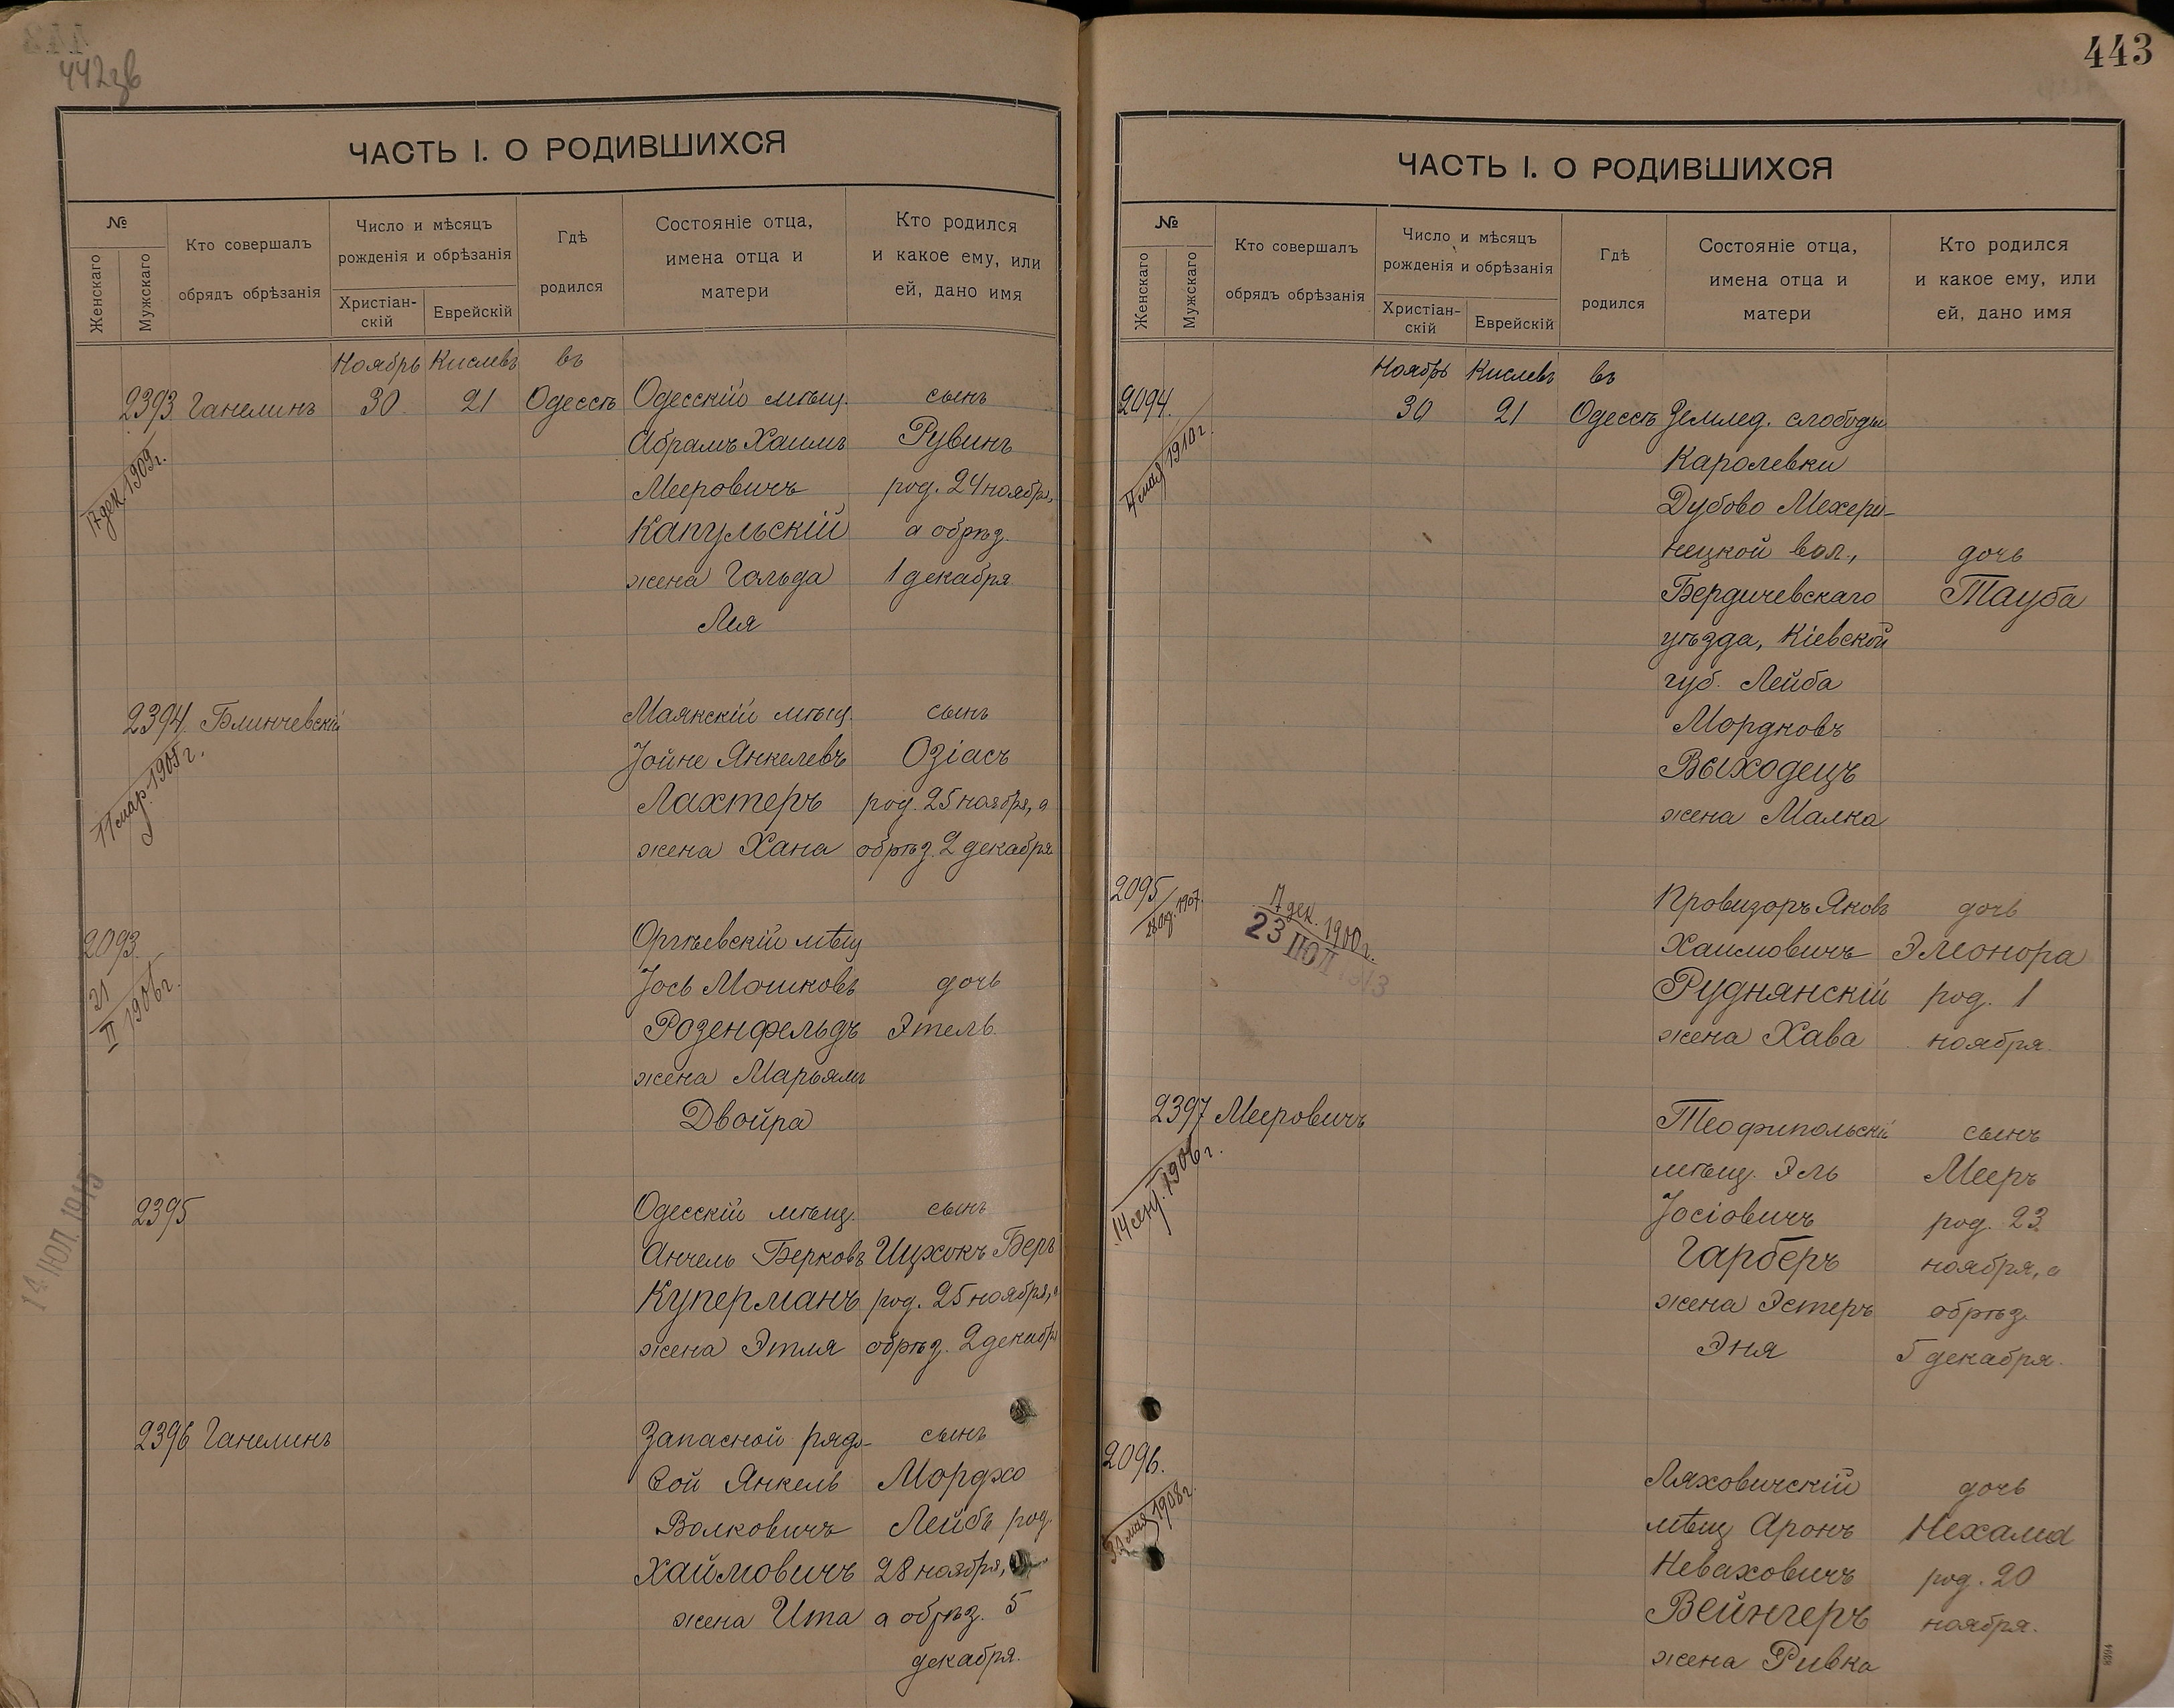 442зв
ЧАСТЬ I. О РОДИВШИХСЯ
№
Женскаго
Мужскаго
Кто совершалъ
обрядъ обрѣзанія
Число и мѣсяцъ
рожденія и обрѣзанія
Христіан-
скій
Еврейскій
Гдѣ
родился
Состояніе отца,
имена отца и
матери
Кто родился
и какое ему, или
ей, дано имя
Ноябрь Кислевъ въ
2393 Ганелинъ 30 21 Одессѣ Одесскій мѣщ. сынъ
Абрамъ Хаимъ Рувинъ
17 дек. 1909г.
Мееровичъ род. 24 ноября,
Капульскій а обрѣз.
жена Гольда 1 декабря
Лея
2394 Блинчевскій Маякскій мѣщ. сынъ
11 мар. 1905г.
Іойне Янкелевъ Озіасъ
Лахтеръ род. 25 ноября, а
жена Хана обрѣз. 2 декабря
2093. Оргѣевскій мѣщ
21/II 1906г.
Іось Мошковъ дочь
Розенфельдъ Этель.
жена Марьямъ
Двойра
14 ИЮЛ. 1913
2395 Одесскій мѣщ. сынъ
Анчель Берковъ Ицхокъ Беръ
Куперманъ род. 25 ноября, а
жена Этля обрѣз. 2 декабр
2396 Ганелинъ Запасной рядо- сынъ
вой Янкель Мордхо
Волковичъ Лейбъ род.
Хаймовичъ 28 ноября,
жена Ита а обрѣз. 5
декабря.
443
ЧАСТЬ I. О РОДИВШИХСЯ
№
Женскаго
Мужскаго
Кто совершалъ
обрядъ обрѣзанія
Число и мѣсяцъ
рожденія и обрѣзанія
Христіан-
скій
Еврейскій
Гдѣ
родился
Состояніе отца,
имена отца и
матери
Кто родился
и какое ему, или
ей, дано имя
Ноябрь Кислевъ въ
2094. 30 21 Одессѣ Землед. слободы
мая 1910г.
Каролевки
Дубово Мехери-
нецкой вол., дочь
Бердичевскаго Тауба
уѣзда, Кіевской
губ. Лейба
Мордковъ
Выходецъ
жена Малка
2095 Провизоръ Яковъ дочь
1907.
17 дек. 1900г.
23 ИЮЛ 1913
Хаимовичъ Элеонора
Руднянскій род. 1
жена Хава ноября.
2397 Мееровичъ Теофипольскій сынъ
14 1906г.
мѣщ. Эль Мееръ
Іосіовичъ род. 23
Гарберъ ноября, а
жена Эстеръ обрѣз.
Эня 5 декабря.
2096. Ляховичскій дочь
мая 1908г.
мѣщ Аронъ Нехама
Неваховичъ род. 20
Вейнгеръ ноября.
жена Ривка